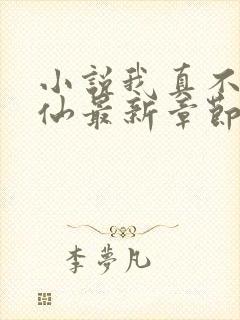 小說我真不
仙最新章節
李夢凡